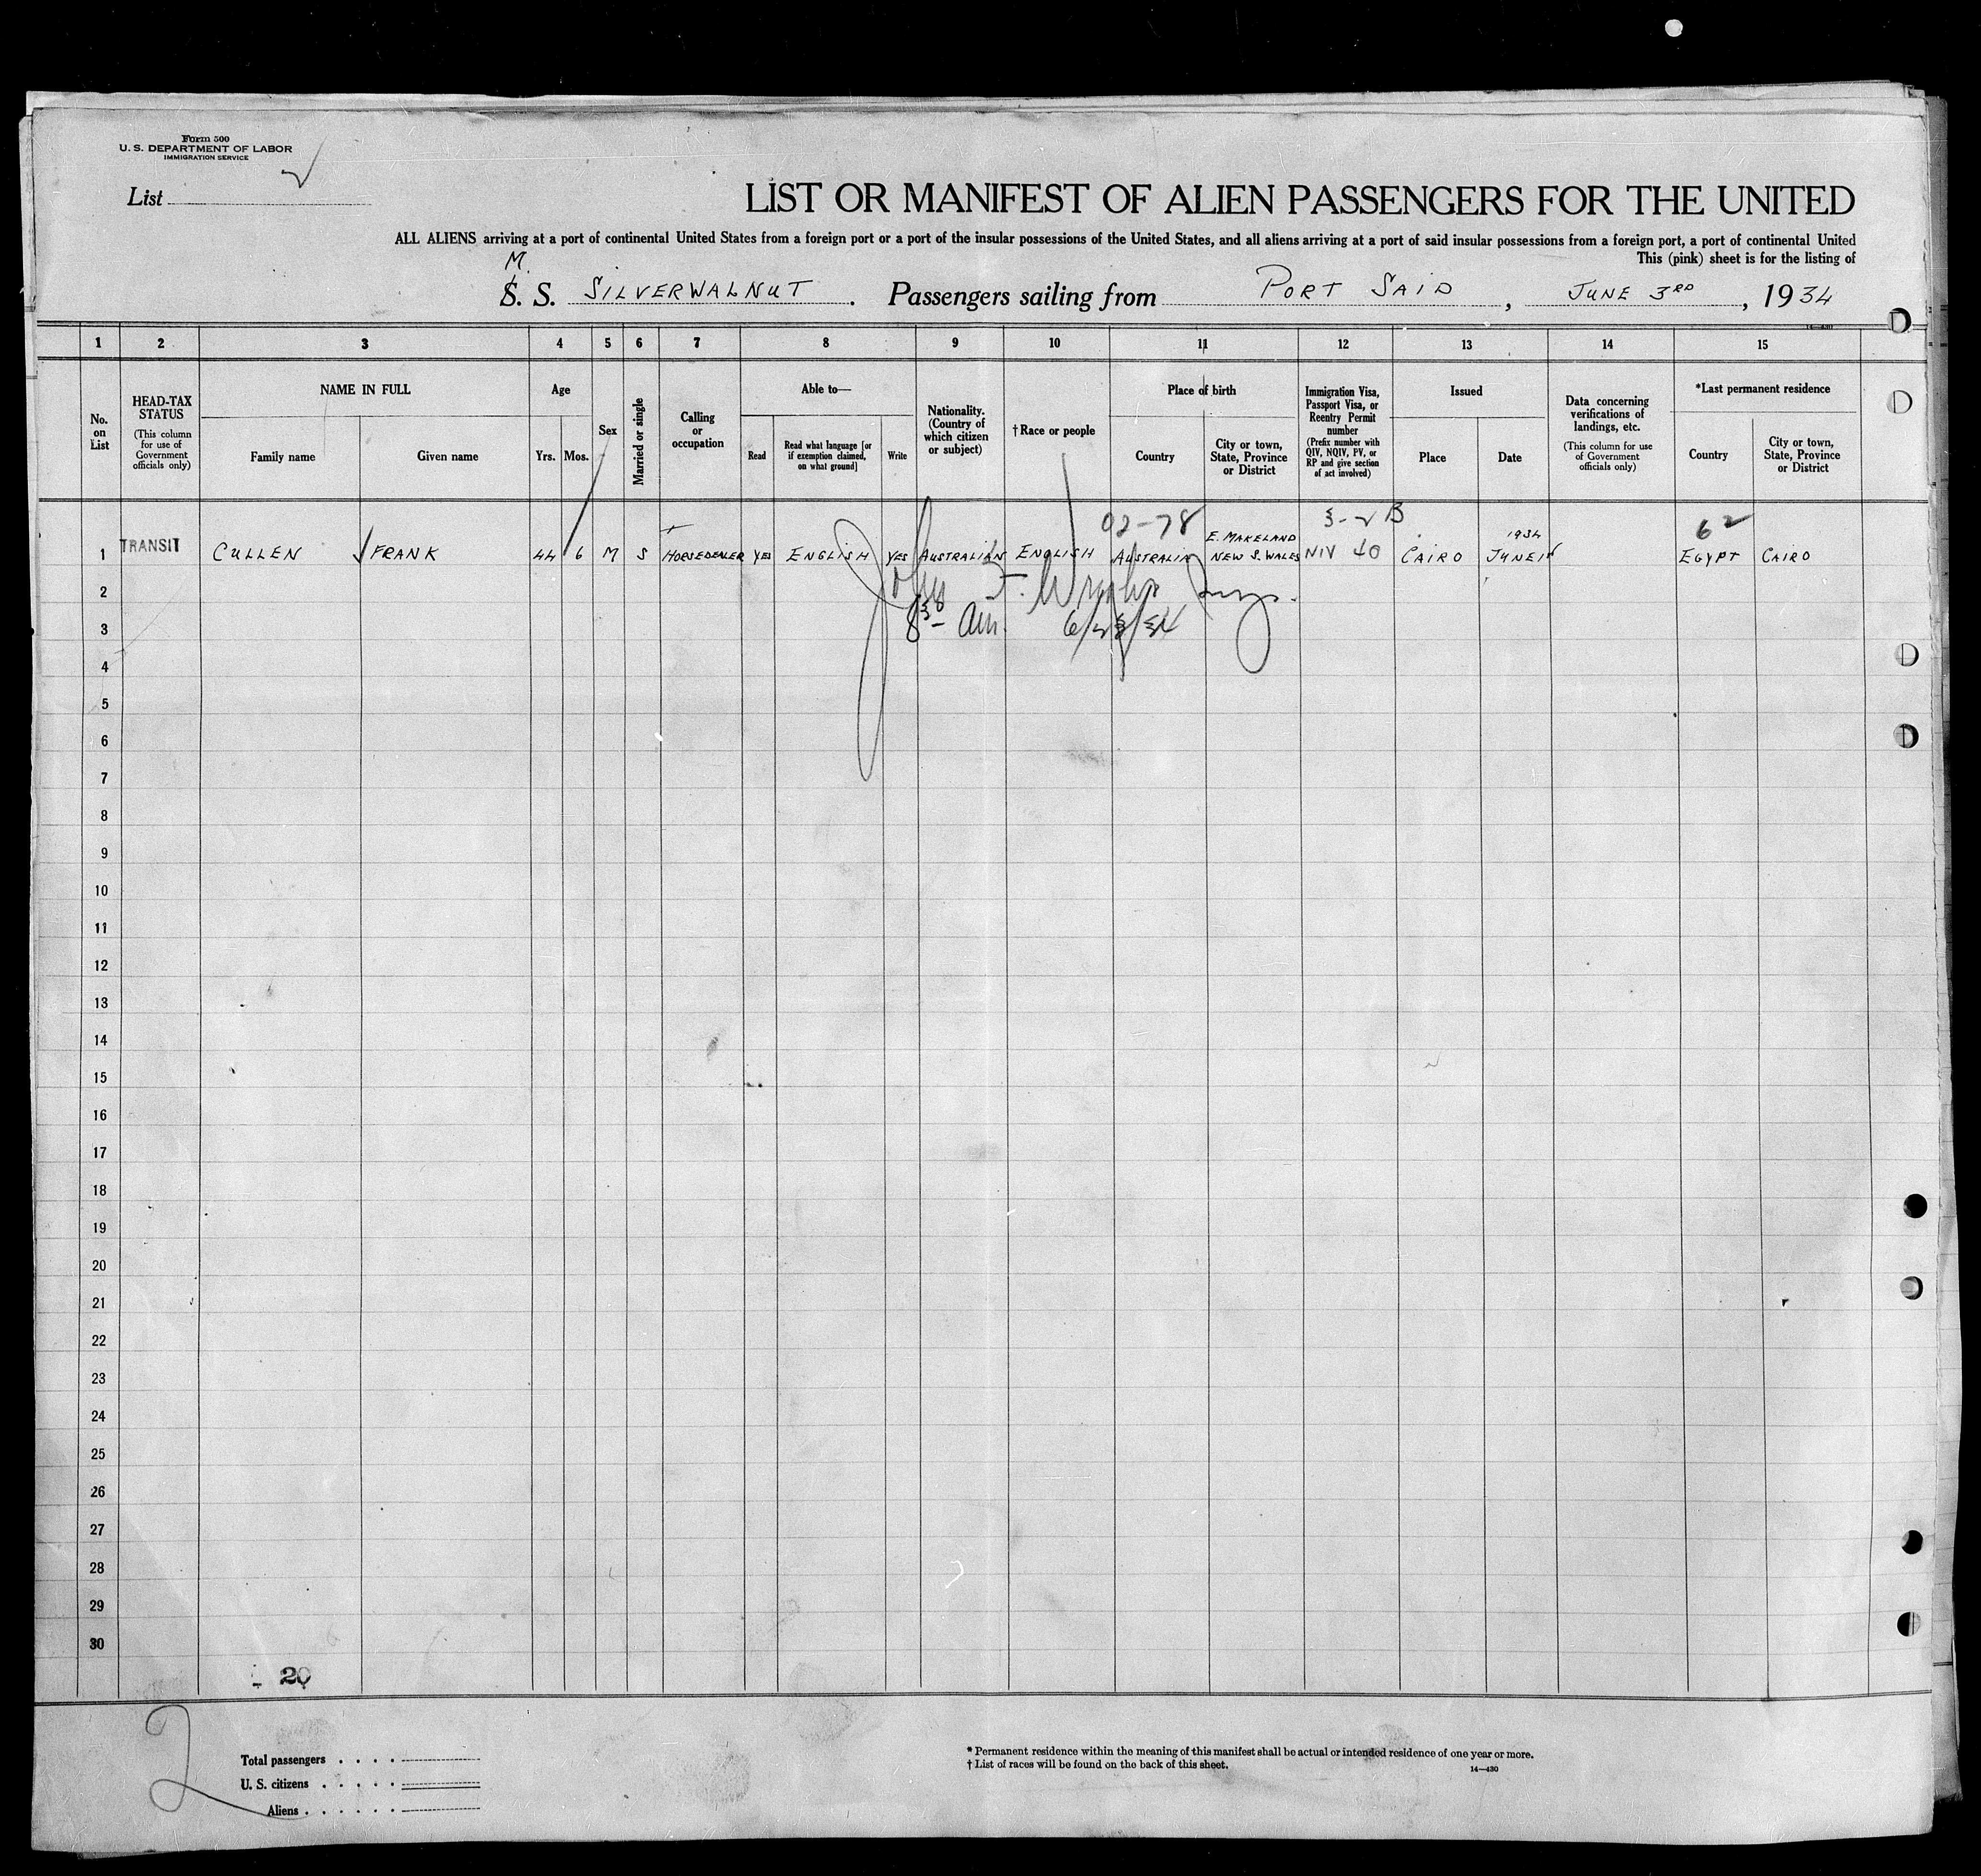 Form 500
U. S. DEPARTMENT OF LABOR
IMMIGRATION SERVICE
List
LIST OR MANIFEST OF ALIEN PASSENGERS FOR THE UNITED
ALL ALIENS arriving at a port of continental United States from a foreign port or a port of the insular possessions of the United States, and all aliens arriving at a port of said insular possessions from a foreign port, a port of continental United
This (pink) sheet is for the listing of
M.
S. S. SILVERWALNUT. Passengers sailing from PORT SAID, JUNE 3RD, 1934
14—430
1 2 3 4 5 6 7 8 9 10 11 12 13 14 15
No. on List
HEAD-TAX STATUS
(This column for use of Government officials only)
NAME IN FULL
Family name
Given name
Age
Yrs.
Mos.
Sex
Married or single
Calling or occupation
Able to—
Read
Read what language [or if exemption claimed, on what ground]
Write
Nationality. (Country of which citizen or subject)
†Race or people
Place of birth
Country
City or town, State, Province or District
Immigration Visa, Passport Visa, or Reentry Permit number
(Prefix number with QIV, NQIV, PV, or RP and give section of act involved)
Issued
Place
Date
Data concerning verifications of landings, etc.
(This column for use of Government officials only)
*Last permanent residence
Country
City or town, State, Province or District
02-78 3-2 B 62
E. MAKELAND 1934
1 TRANSIT CULLEN FRANK 44 6 M S HORSEDEALER YES ENGLISH YES AUSTRALIAN ENGLISH AUSTRALIA NEW S. WALES NIV 40 CAIRO JUNE 1st EGYPT CAIRO
2
3 8 30 am. 6/28/34
4
5
6
7
8
9
10
11
12
13
14
15
16
17
18
19
20
21
22
23
24
25
26
27
28
29
30
20
2
Total passengers
U. S. citizens
Aliens
* Permanent residence within the meaning of this manifest shall be actual or intended residence of one year or more.
† List of races will be found on the back of this sheet.
14—430